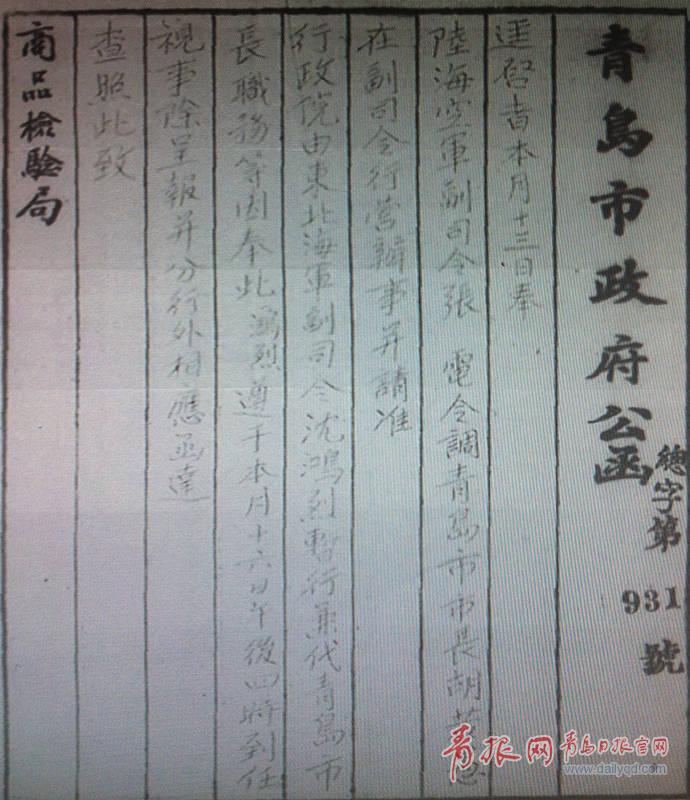 青島市政府公函
總字第931號
逕啓者本月十三日奉
陸海空軍副司令張 電令調青島市市長胡若愚
在副司令行營辦事并請准
行政院由東北海軍副司令沈鴻烈暫行兼代青島市
長職務等因奉此鴻烈遵于本月十六日午後四時到任
視事除呈報并分行外相應函達
查照此致
商品檢驗局
青报网 青島日报官网
www.dailyqd.com